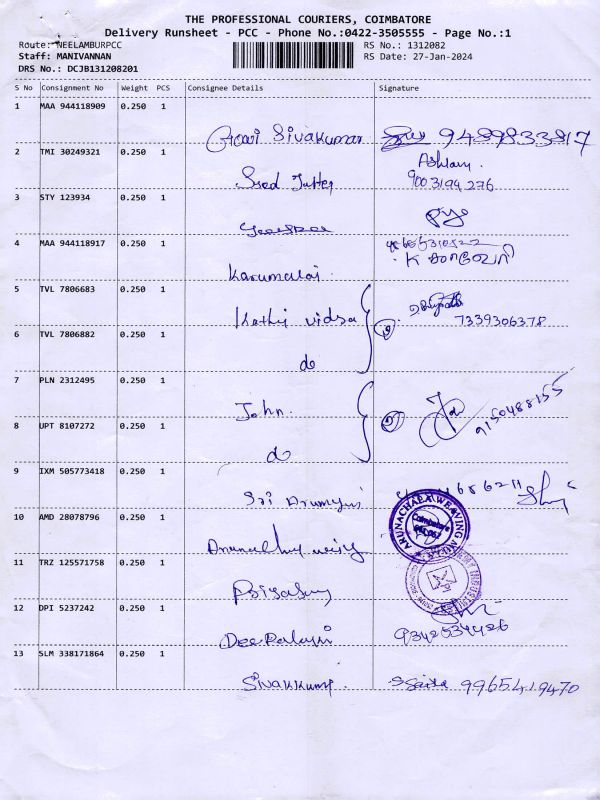 THE PROFESSIONAL COURIERS, COIMBATORE
Delivery Runsheet - PCC - Phone No.:0422-3505555 - Page No.:1
Route: NEELAMBURPCC RS No.: 1312082
Staff: MANIVANNAN RS Date: 27-Jan-2024
DRS No.: DCJB131208201
S No Consignment No Weight PCS Consignee Details Signature
1 MAA 944118909 0.250 1
Sivakumar 9489833817
2 TMI 30249321 0.250 1
9003194276
3 STY 123934 0.250 1
4 MAA 944118917 0.250 1
Karumalai
5 TVL 7806683 0.250 1
Kathij vidsa 7339306378
6 TVL 7806882 0.250 1
do
7 PLN 2312495 0.250 1
John. 9150488155
8 UPT 8107272 0.250 1
do
9 IXM 505773418 0.250 1
Sri
10 AMD 28078796 0.250 1
ARUNACHALA WEAVING MILLS
Coimbatore
11 TRZ 125571758 0.250 1
12 DPI 5237242 0.250 1
9342534426
13 SLM 338171864 0.250 1
Sivakkumy. 9965419470